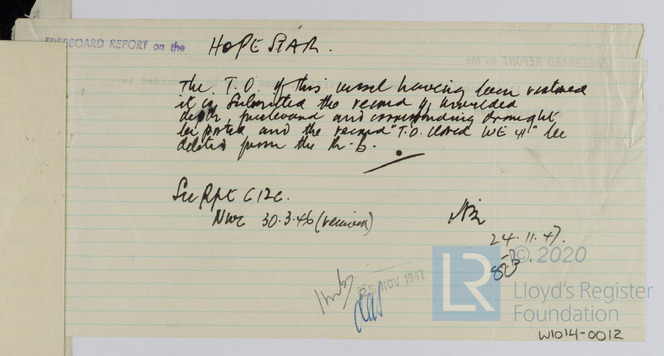 FREEBOARD REPORT on the HOPE STAR.
The T.O. of this vessel having been restored
it is submitted the record of moulded
depth, freeboard and corresponding draught
be posted and the record "T.O. closed WE 41" be
deleted from the R.B.
See Rpt C12C.
Nwc 30.3.46
24.11.47.
25 NOV 1947
© 2020
LR
Lloyd's Register
Foundation
W1014-0012